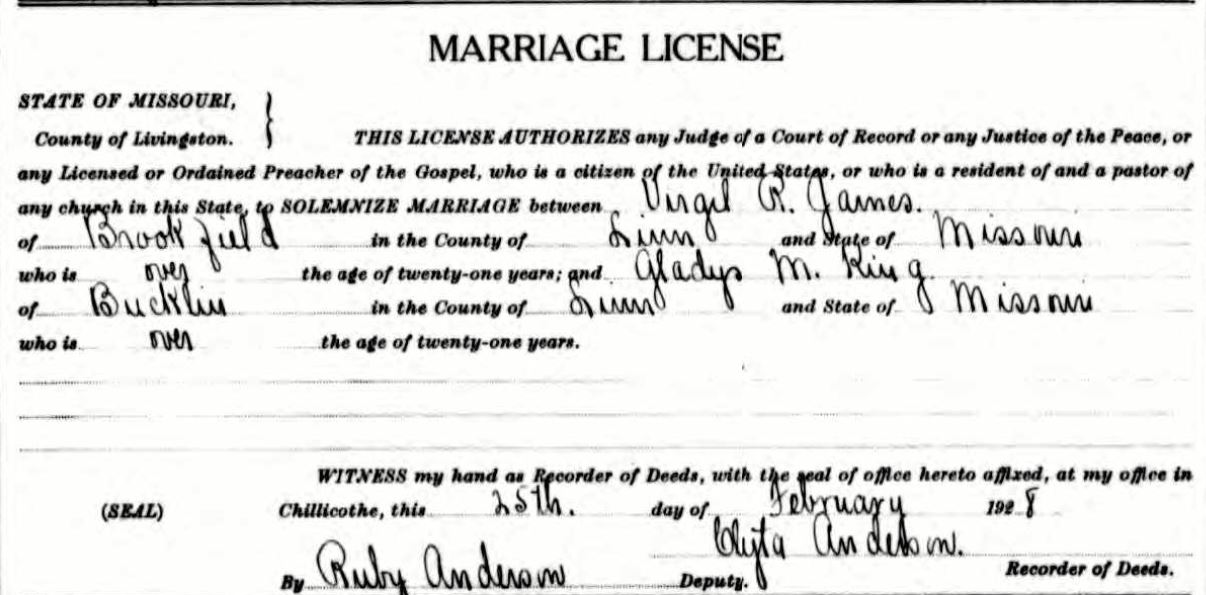 MARRIAGE LICENSE
STATE OF MISSOURI,
County of Livingston. THIS LICENSE AUTHORIZES any Judge of a Court of Record or any Justice of the Peace, or
any Licensed or Ordained Preacher of the Gospel, who is a citizen of the United States, or who is a resident of and a pastor of
any church in this State, to SOLEMNIZE MARRIAGE between Virgil R. James.
of Brookfield in the County of Linn and State of Missouri
who is over the age of twenty-one years; and Gladys M. King
of Bucklin in the County of Linn and State of Missouri
who is over the age of twenty-one years.
WITNESS my hand as Recorder of Deeds, with the seal of office hereto affixed, at my office in
(SEAL) Chillicothe, this 25th. day of February 1928
Clyta Anderson.
Recorder of Deeds.
By Ruby Anderson Deputy.